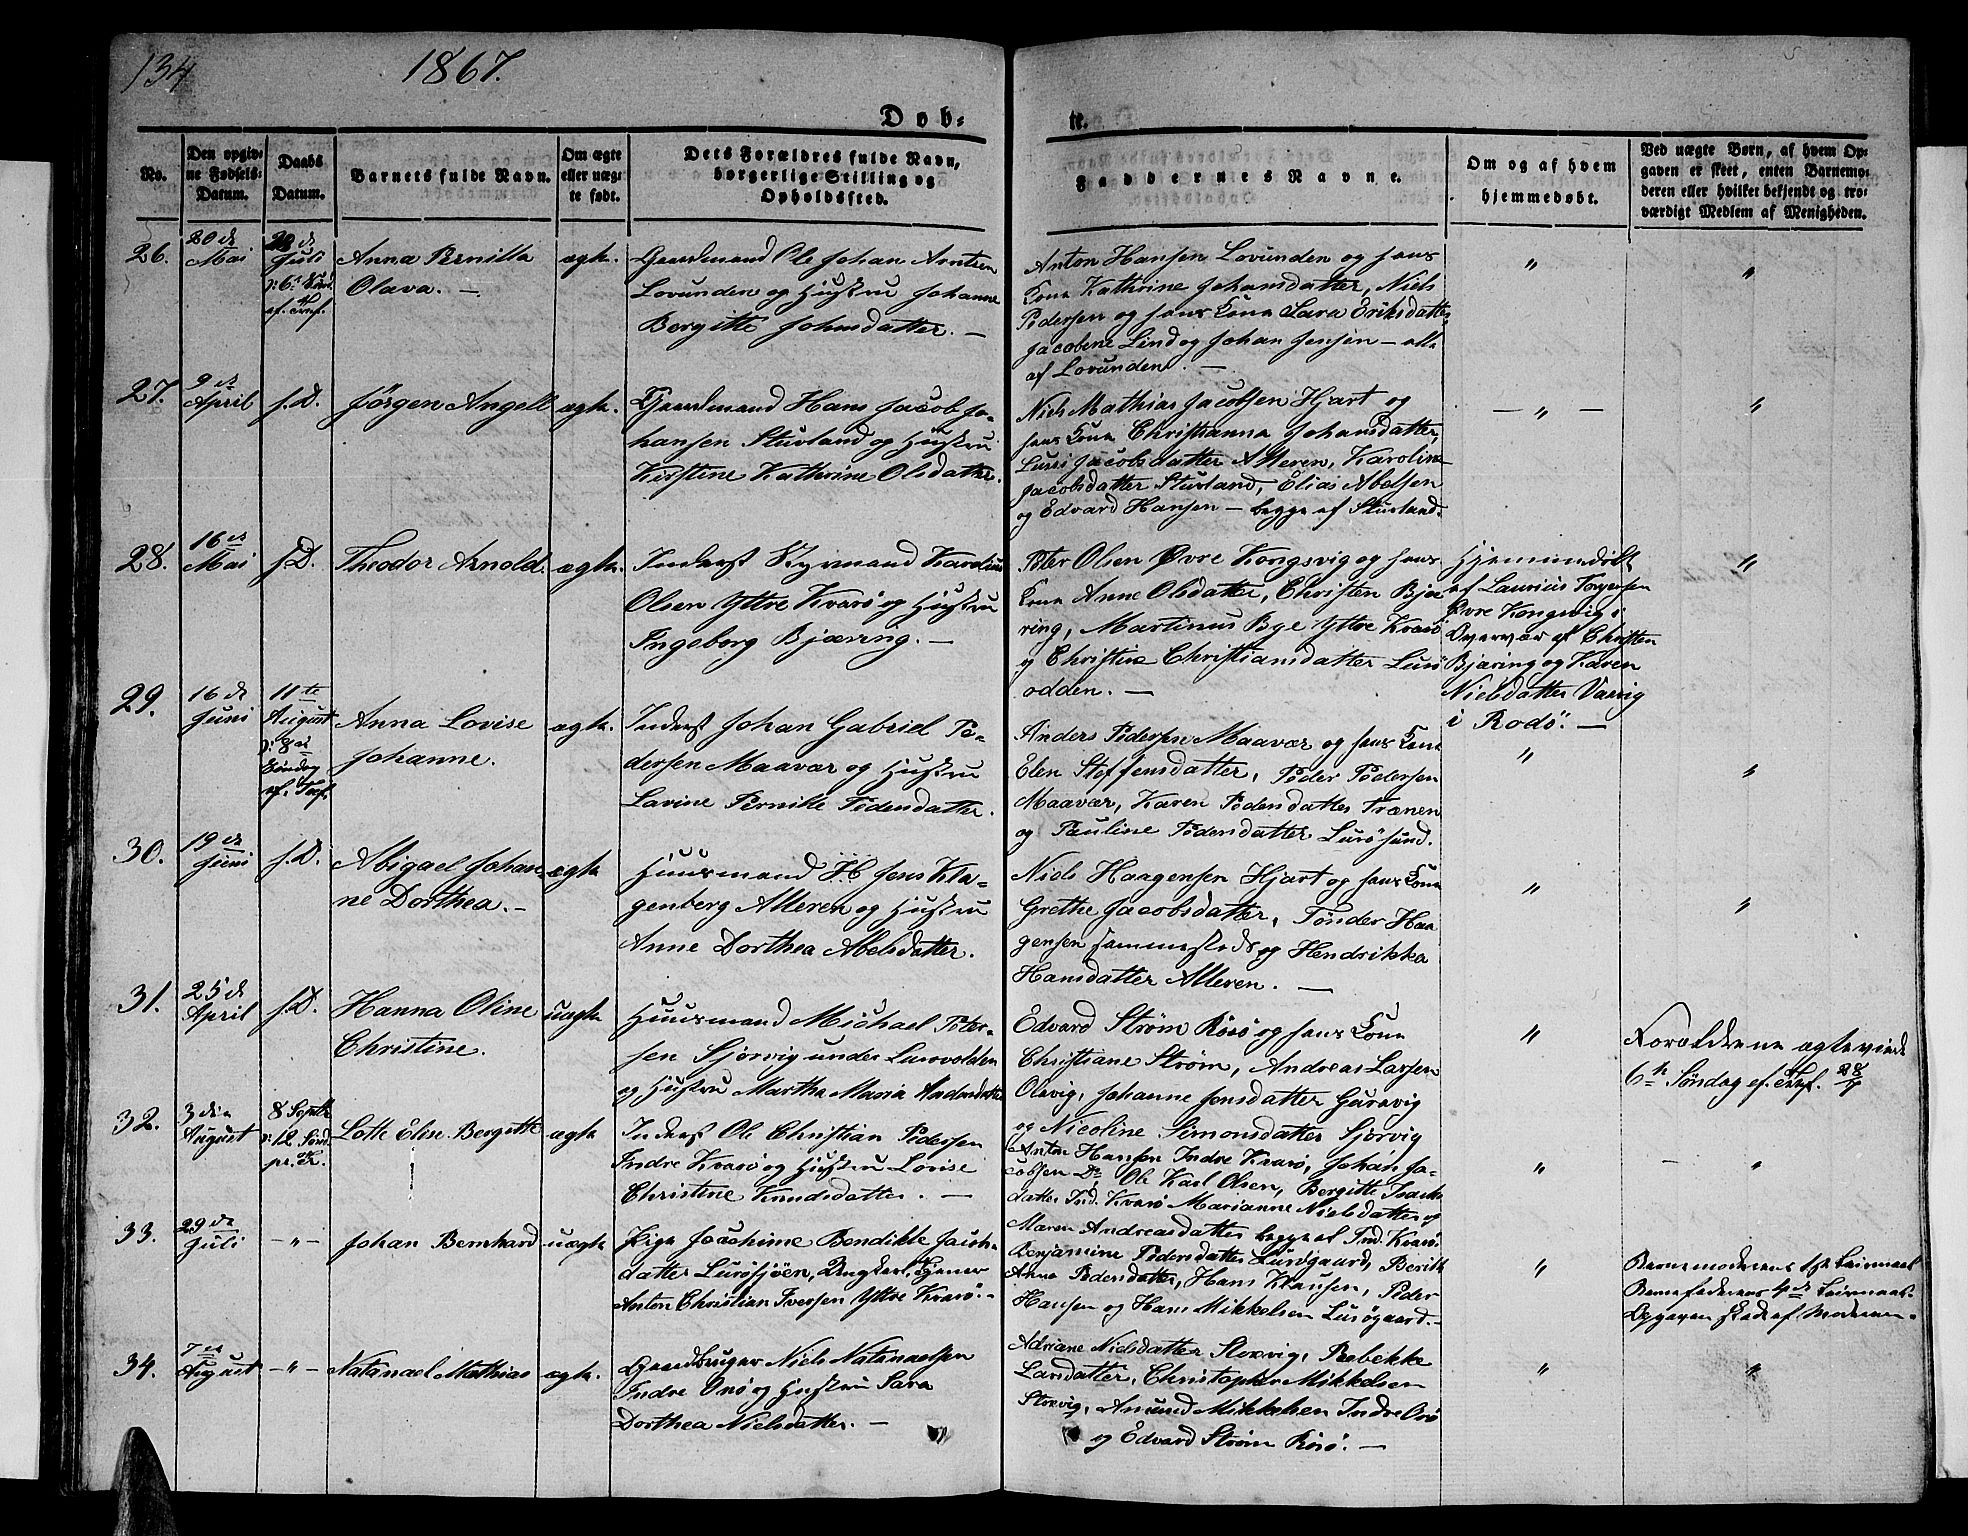 134
1867.
Døb-
te.
No.
Den opgiv-
ne Fødsels-
Datum.
Daabs
Datum.
Barnets fulde Navn.
Om ægte
eller uæg-
te født.
Dets Forældres fulde Navn,
borgerlige Stilling og
Opholdssted.
Faddernes Navne.
Om og af hvem
hjemmedøbt.
Ved uægte Børn, af hvem Op-
gaven er skeet, enten Barnemo-
deren eller hvilket bekjendt og tro-
værdigt Medlem af Menigheden.
26.
20 de
Mai
28 de
Juli
Anna Pernilla
Olava. —
ægte.
Gaardmand Ole Johan Arntsen
Lovunden og Hustru Johanne
Borgitte Johnsdatter. —
Anton Hansen Lovunden og hans
Kone Kathrine Johansdatter, Niels
Pedersen og hans Kone Sara Eriksdatter,
Jacobene Lind og Johan Jensen — alle
af Lovunden. —
"
"
27.
9 de
April
s.D.
Jörgen Angell
ægte.
Gaardmand Hans Jacob Jo-
hansen Stuvland og Hustru
Kirstine Kathrine Olsdatter.
Niels Mathias Jacobsen Hjart og
hans Kone Christianna Johansdatter,
Jacobsdatter Alteren, Karoline
Jacobsdatter Stuvland, Elias Abelsen
og Edvard Hansen — begge af Stuvland.
— " —
"
28.
16 de
Mai
s.D.
Theodor Arnold.
ægte.
Inderst Karolius
Olsen Yttre Kvarø og Hustru
Ingeborg Bjæring. —
Peter Olsen Øvre Kongsvig og hans
Kone Anne Olsdatter, Christen Bjæ
ring, Martinus Bye Yttre Kvarö
og Christine Christiansdatter Lurö
odden. —
Hjemmedöbt
af Laurius
Øvre Kongsvig i
Overvær af Christen
Bjæring og Karen
Nielsdatter Værvig
i Rodö. —
"
29.
16 de
Juni
11te
August
8 de
Söndag
ef. Tref.
Anna Lovise
Johanne.
ægte.
Inderst Johan Gabriel Pe-
dersen Maavær og Hustru
Lavine Pernille Pedersdatter.
Anders Pedersen Maavær og hans Kone
Elen Steffensdatter, Peder Pedersen
Maavær, Karen Pedersdatter Trænen
og Pauline Pedersdatter Lurösund.
"
"
30.
19 de
Juni
s.D.
Abigael Johan-
ne Dorthea. —
ægte
Huusmand H Jens Kla-
genberg Alteren og Hustru
Anne Dorthea Abelsdatter.
Niels Haagensen Hjart og hans Kone
Grethe Jacobsdatter, Tönder Haa
gensen sammesteds og Hendrikka
Hansdatter Alteren. —
"
"
31.
25 de
April
s.D.
Hanna Oline
Christine.
uægte
Huusmand Michael Peter-
sen Sjörvig under Lurvolden
og Hustru Martha Maria
Edvard Ström Rösö og hans Kone
Christiane Ström, Andreas Larsen
Olsvig, Johanne Jonsdatter Gursvig
og Nicoline Simonsdatter Sjörvig
"
Forældrene ægteviede
6te Söndag ef. Tref. 28/7
32.
3 die
August
8 Septbr
12 Sönd
Lotte Elen Bergitte
ægte
Inderst Ole Christian Pedersen
Indre Kvarø og Hustru Lovise
Christine Knudsdatter. —
Anton Hansen Indre Kvarö, Johan Ja-
cobsen Do, Ole Karl Olsen, Bergitte Isaks
datter Ind. Kvarö Marianne Nielsdatter og
Maren Andreasdatter begge af Ind. Kvarö.
"
— "
33.
29 de
Juli
— " —
Johan Bernhard
uægte
Pige Joachime Bendikte Jacob-
datter Lurösjöen, Ungkarl, Tjener
Anton Christian Iversen Yttre Kvarö. —
Benjamine Pedersdatter Lurögaard, Berith
Anna Pedersdatter, Hans Klausen, Peder
Hansen og Hans Mikkelsen Lurögaard. —
"
Barnemoderens 1ste Leiermaal
Barnefaderens 4de Leiermaal.
Opgaven skede af Moderen.
34.
7 de
August
— " —
Natanael Mathias
ægte.
Gaardbruger Niels Natanaelsen
Indre Onö og Hustru Sara
Dorthea Nielsdatter. —
Adriane Nielsdatter Storvig, Rebekke
Larsdatter, Christopher Mikkelsen
Storvig, Amund Mikkelsen Indre Onö
og Edvard Ström Rösö. —
"
"